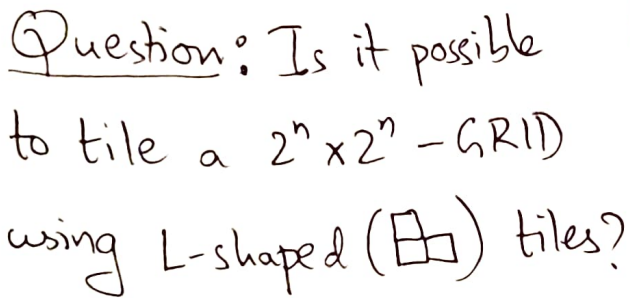 Question: Is it possible
to tile a 2ⁿ x 2ⁿ - GRID
using L-shaped ( ) tiles?